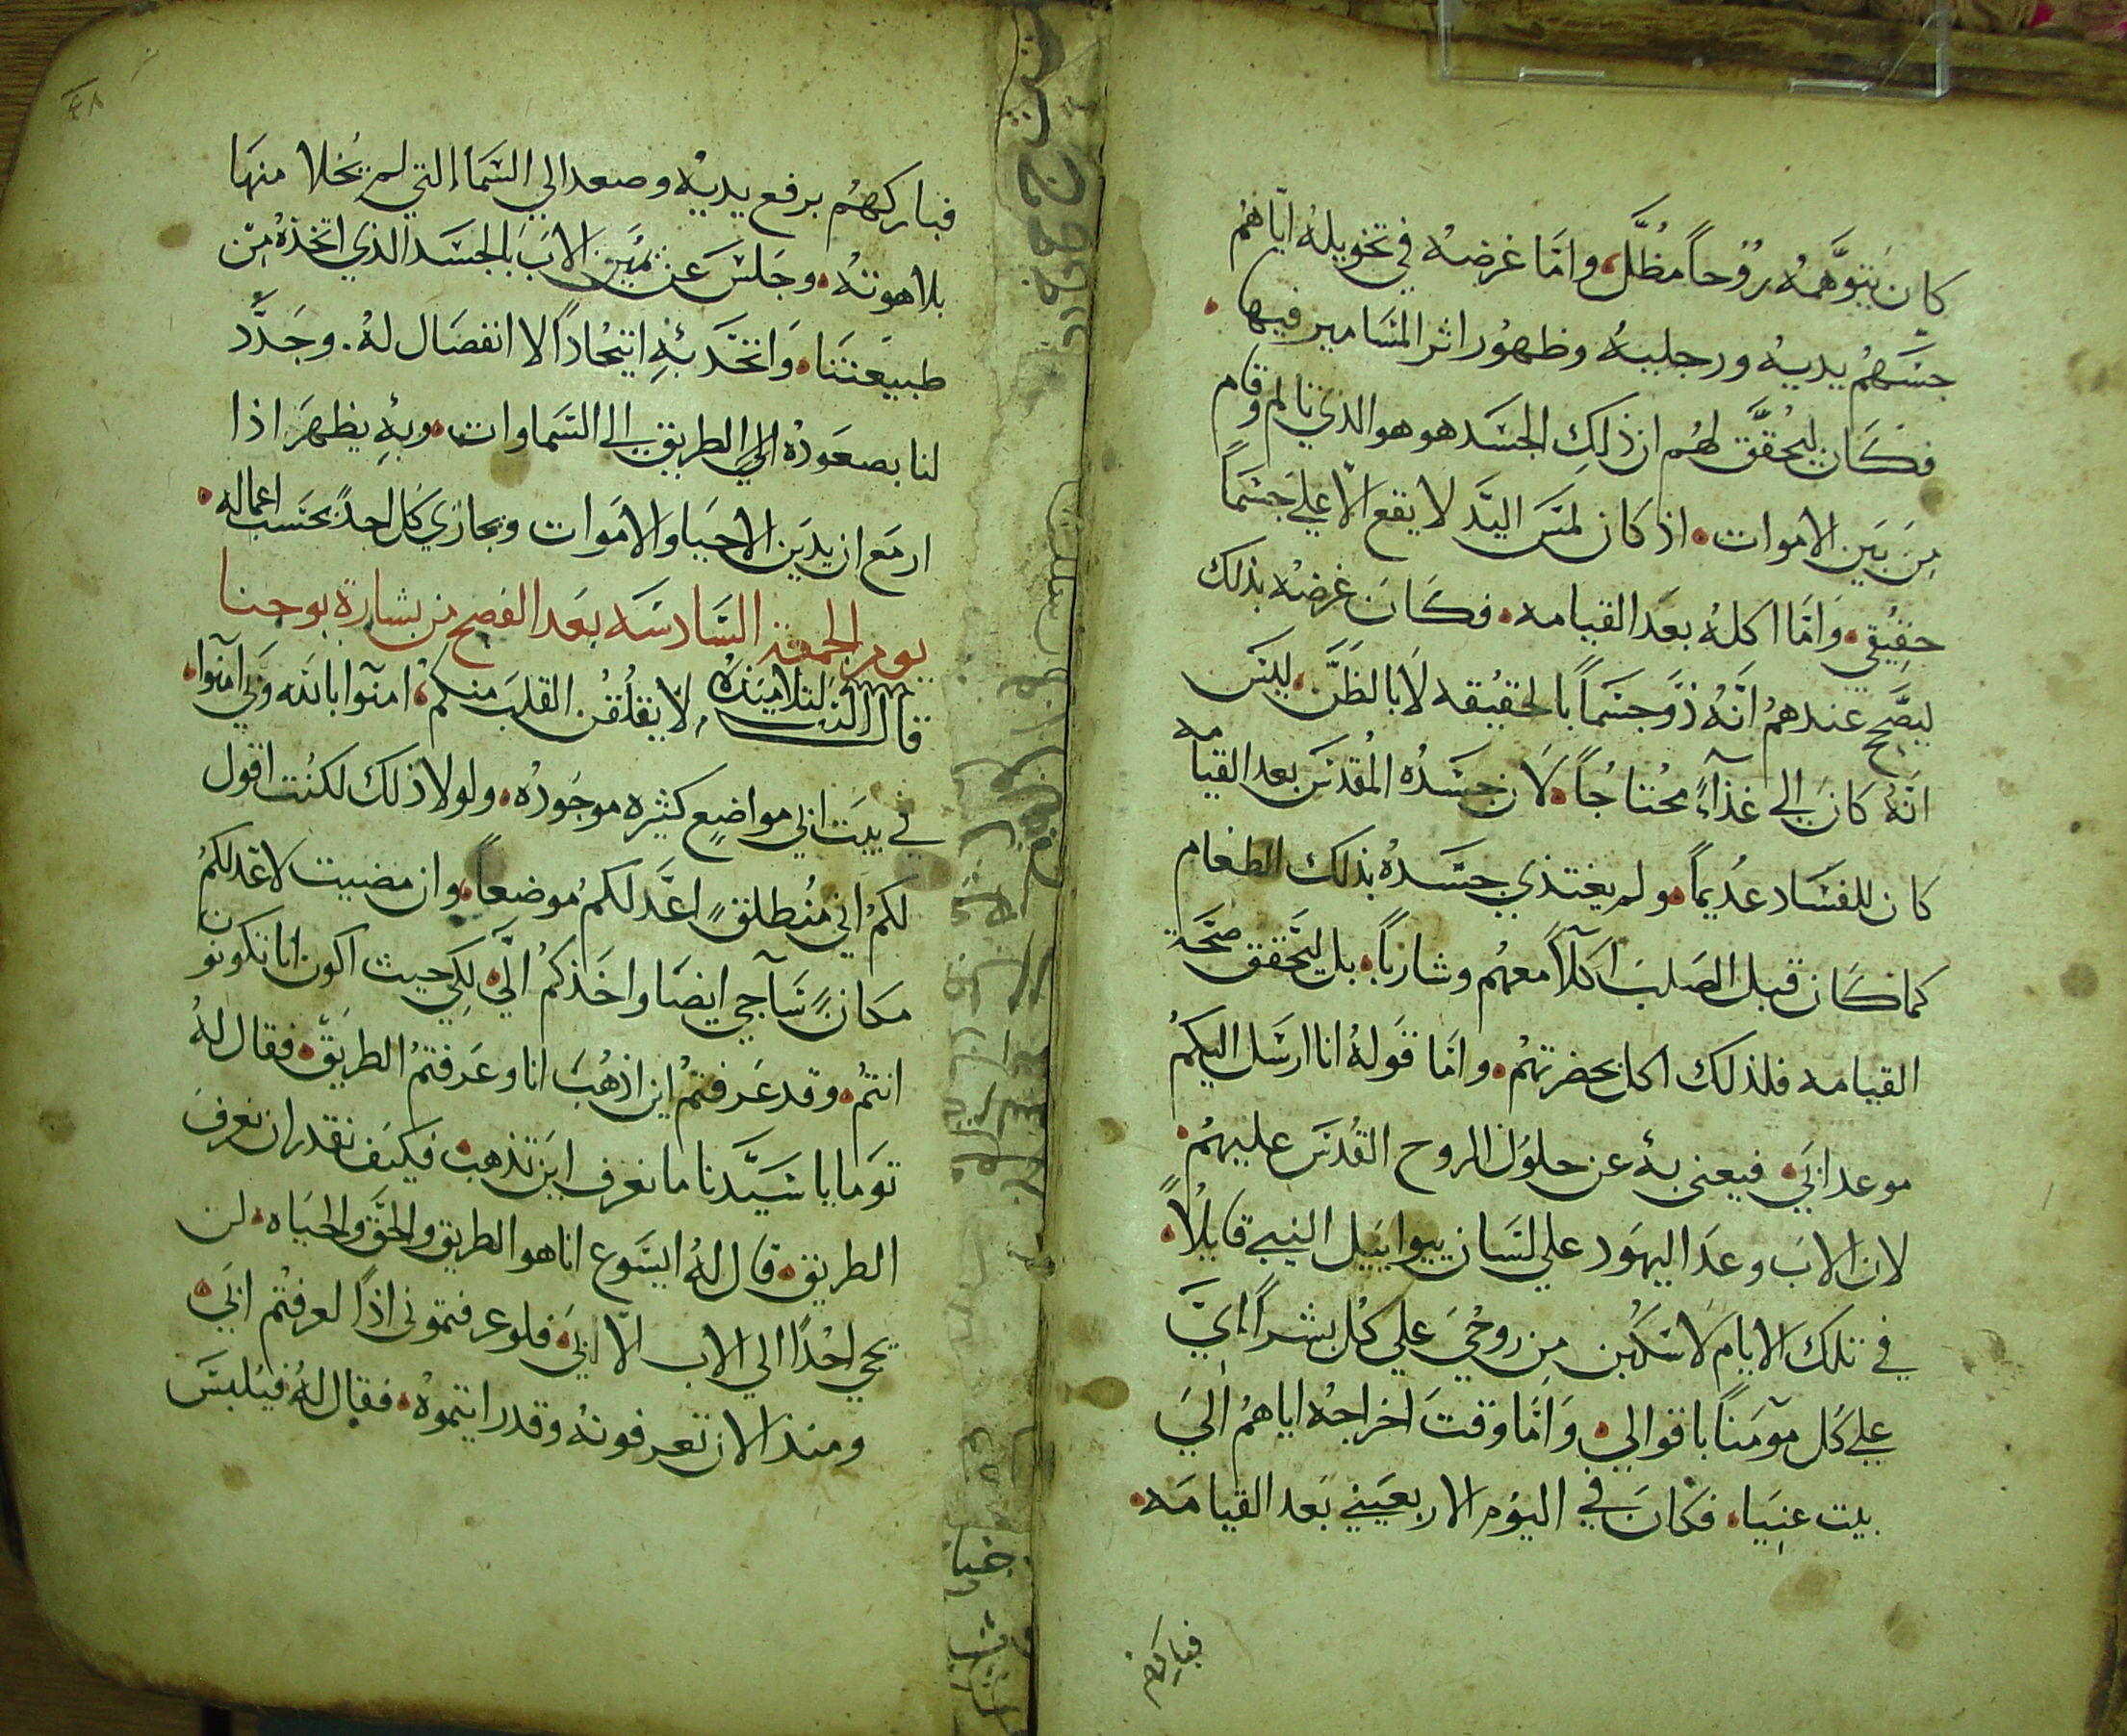 كان يتوَّهمهُ روُحاً مُظَّل، وامَّا غرضهُ في تخويلهُ ايّاهمُ
جسَّهمُ يديهُ ورجليهُ وظهوُر اثر المسَامير فيها
فكَان ليُحقَّق لهُم ان ذلكِ الجسَد هو هو الذي تالم وقام
مِن بَين الاموات. اذ كان لمسَ اليَّد لا يقع الّا علي جسَماً
حقيُقي. وَامَّا اكلهُ بعدَ القيامه. فكَانَ غرضهُ بذلك
ليصَّح عندهمُ انَّهُ ذوَ جسَماً بالحقيُقه لَا بالظَنَّ. ليسَ
انَّهُ كانَ الي غذآءً محُتاجُاً. لَان جسَدُه المُقدسَ بعد القيامه
كان للفسَاد عدُيماً. ولم يغتذي جسَدهُ بذلك الطعام
كما كَان قبل الصَلبَ آكلاً معهمُ وشارباً. بل ليتَحقق صحَّة
القيامه فلذلك اكل بحضرتهمُ. وامَّا قَولهُ انا ارسَل اليكمُ
موعد ابَي. فيعني بهُ عن حلوُل الروح القُدسَ عليهمُ.
لان الابَ وعدَ اليهوَد علي لسَان ييواييَل النبي قايلُاً.
في تلك الايام لَاسَكُبن مِن روحُيَ علي كُل بشراً. ايَّ
علي كُل موٓمَناً باقوالي. وَامَّا وقتَ اخراجهُ اياهمُ الَيَ
بيت عنِيَا. فكَانَ في اليَوم الاربعيَني بَعد القيامَه.
فباركهم
٤٨
فباركهمُ برفع يديهُ وصعد الي السَمَاء التي لم يُخلا منهَا
بلاهوتهُ. وجَلسَ عَن يمَين الابَ بَالجسَد الذي اتخذهُ مِن
طبيَعتنَا. وَاتحَّد بهِ اتيحَاداً لا انفصَال لهُ. وجَدَّد
لنا بصعَودهُ اليَ الطريق الي السَماوات. وبهِ يظهَر اذا
ازمَع ان يديَن الاحيَا والامَوات ويجازي كَل احدً بحَسَب اعماله.
يوم الجمعة السَادسَه بعَد الفصح من بشارة يوحنا
قال الرب لتلاميَذهُ لا يقلُقن القلبَ منكمُ، امنٓوا بالله وَبي امنٓوا.
في بيَت ابي مواضِع كثيره موجَودُه. ولولا ذلك لكنُت اقول
لكمُ اني منُطلق اعَّد لكمُ موضعاً. وان مضيت لاعَد لكمُ
مكَانً سَآجي ايضَا واخَذكمُ الَّي. لِكي حيث اكون انا تكونون
انتمُ. وقد عَرفتمُ اين اذهُبَ انا وعَرفتمُ الطريَق. فقال لهُ
توَما يا سَيَّدنا ما نعرف ايَن تذهب فكيَف نقدر ان نعرفَ
الطريق. قال لهُ ايسَوع انا هو الطريق والحَق والحيَاه. لن
يجي احُدًا الي الاب الّا بَي. فلو عرفتموني اذًا لعرفتُم ابَي.
ومنذ الان تعرفونهُ وقد رايتموهُ. فقال لهُ فيلبسَ